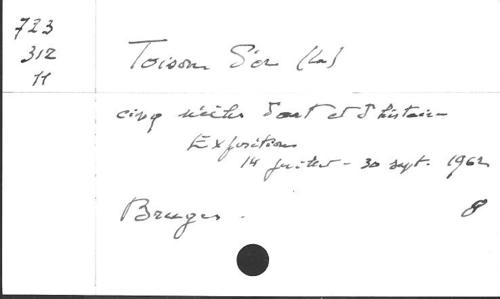 723
312
11
Toison d'or (La)
cinq siècles d'art et d'histoire
Exposition
14 juillet - 30 sept. 1962
Bruges.
8